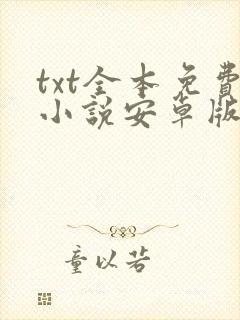 txt全本免費
小說安卓版
童以若